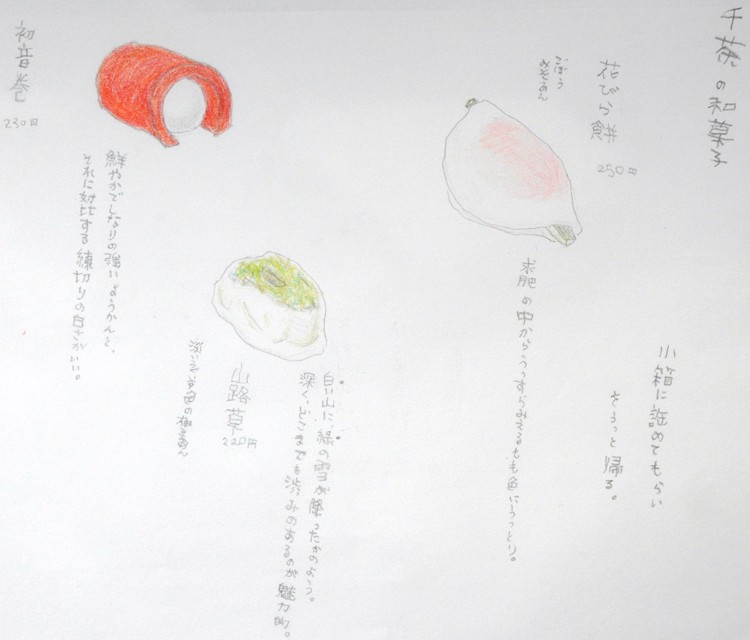 千茶の和菓子
小箱に詰めてもらい
そろっと帰る。
花びら餅
250円
ごぼう
みそあん
求肥の中からうっすらみえるもも色にうっとり。
山路草
220円
白い山に、緑の雪が降ったかのよう。
深く、どこまでも渋みのあるのが魅力的。
初音巻
230円
鮮やかでしなりの強いようかんと、
それに対比する練切りの白さがいい。